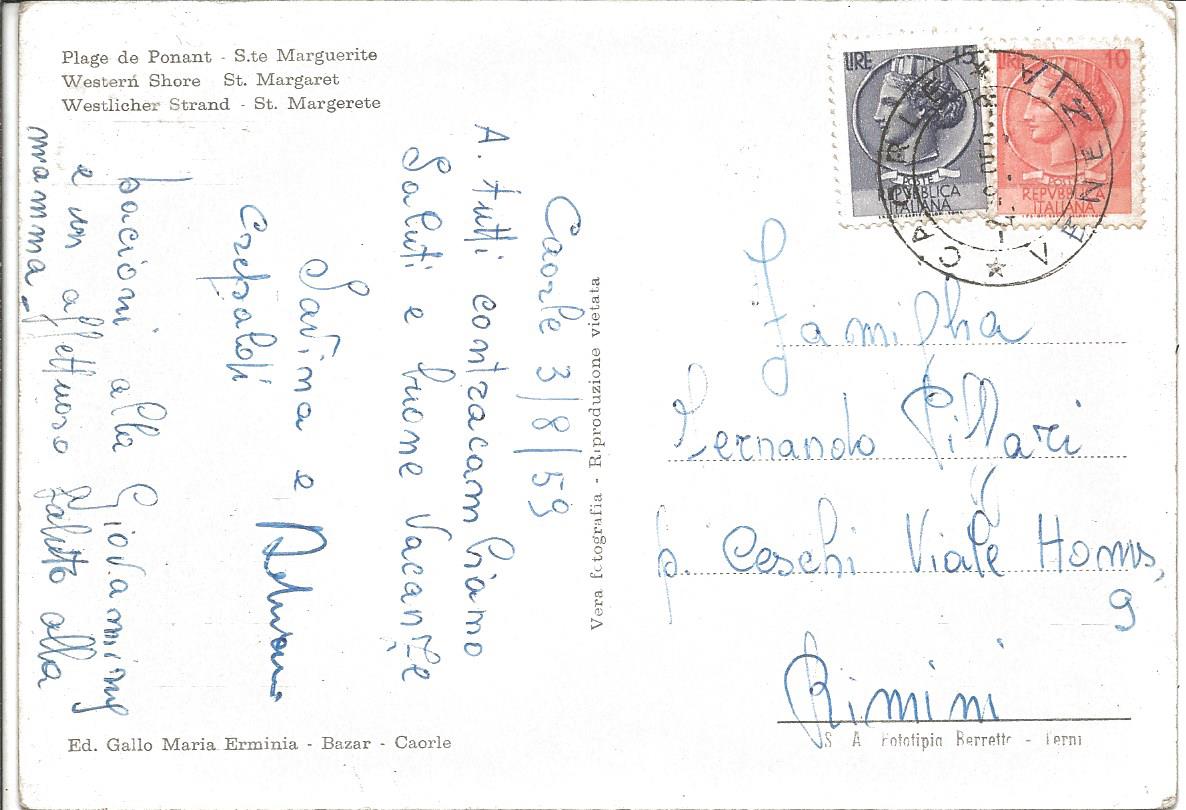 Plage de Ponant - S.te Marguerite
Western Shore St. Margaret
Westlicher Strand - St. Margerete
LIRE 15
POSTE
REPVBBLICA
ITALIANA
LIRE 10
POSTE
REPVBBLICA
ITALIANA
CAORLE
VENEZIA
Caorle 3/8/59
A tutti contracambiamo
Saluti e buone Vacanze
Savina e
bacioni alla Giovanniny
e un affettuoso saluto alla
mamma -
Vera fotografia - Riproduzione vietata
Famiglia
Fernando Pillari
p. Ceschi Viale Homs,
9
Rimini
Ed. Gallo Maria Erminia - Bazar - Caorle
S. A. Fototipia Berretta - Terni